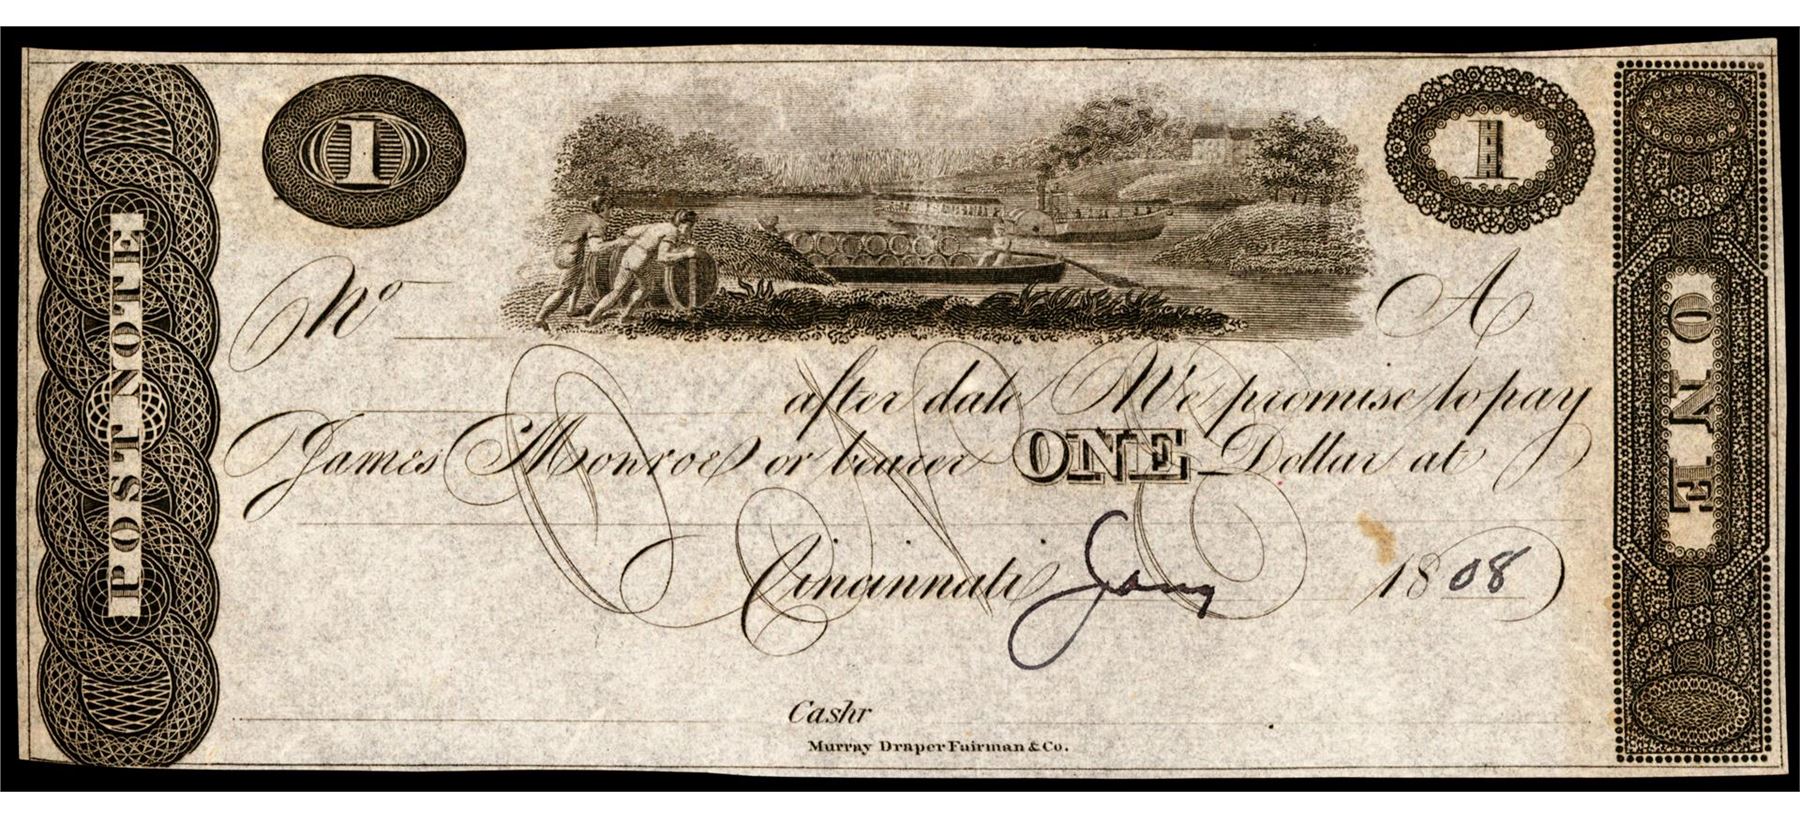 POST NOTE
1
1
ONE
No A
after date We promise to pay
James Monroe or bearer ONE Dollar at
Cincinnati Jany 1808
Cashr
Murray Draper Fairman & Co.